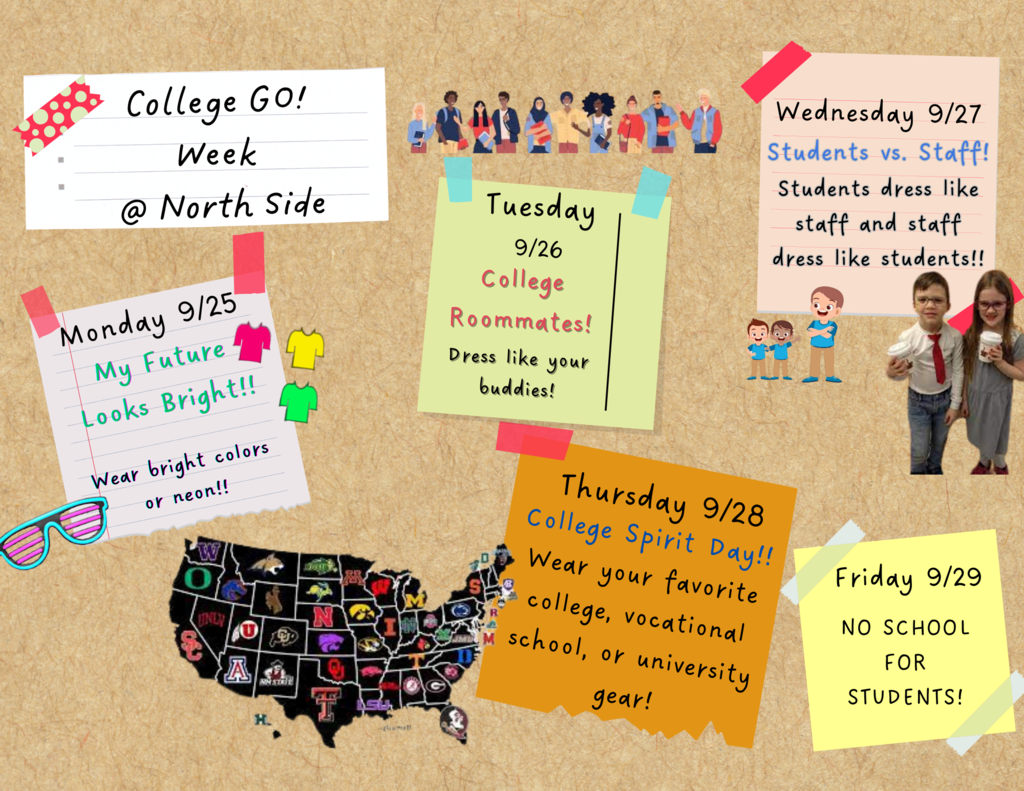 College GO!
Week
@ North Side
Monday 9/25
My Future
Looks Bright!!
Wear bright colors
or neon!!
Tuesday
9/26
College
Roommates!
Dress like your
buddies!
Wednesday 9/27
Students vs. Staff!
Students dress like
staff and staff
dress like students!!
Thursday 9/28
College Spirit Day!!
Wear your favorite
college, vocational
school, or university
gear!
Friday 9/29
NO SCHOOL
FOR
STUDENTS!
UNLV
NM STATE
LSU